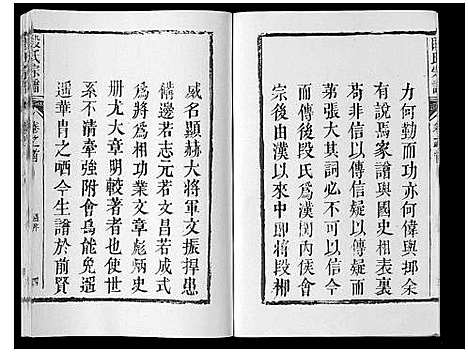 力何勤而功亦何偉與抑余
有說焉家譜與國史相表裏
苟非信以傳信疑以傳疑而
第張大其詞必不可以信今
而傳後段氏為漢関內侯會
宗後由漢以來中卽將段柳
威名顯赫大將軍文振捍患
備邊若志元若文昌若成式
為將為相功業文章彪炳史
册尤大章明較著者也使世
系不清牽強附會烏能免遥
遥華胄之哂今生譜於前賢
段氏宗譜
卷之首
四